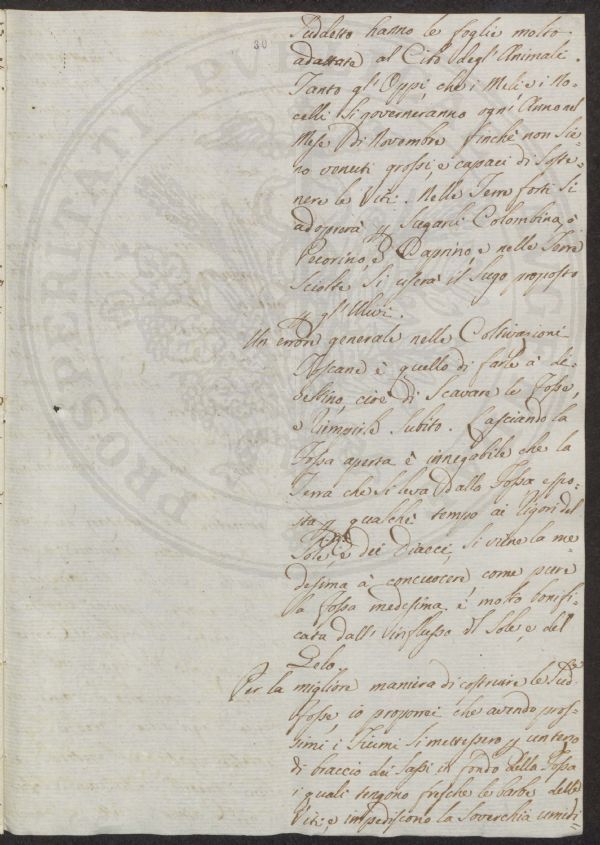 30
Suddetto hanno le foglie molto
adattate al Cibo degl'Animali.
Tanto gl'Oppi, che i Meli e i No-
celli si governeranno ogni Anno nel
Mese di Novembre finchè non sie-
no venuti grossi, e capaci di soste-
nere le Viti. Nelle Terre forti si
adoprerà p Sugarli Colombina, ò
Pecorino, è Caprino, e nelle Terre
Sciolte si userà il Sugo proposto
p gl'Ulivi.
Un errore generale nelle Coltivazioni
Toscane è quello di farle à de-
stino, cioè di Scavare le Fosse,
e riempirle Subito. Lasciando la
Fossa aperta è innegabile che la
Terra che si leva dalla Fossa espo-
sta p qualche tempo ai Rigori del
Sole, è dei Diacci, si viene la me-
desima à concuocere come pure
la fossa medesima è molto bonifi-
cata dall'influsso del Sole, e del
Gelo
Per la migliore maniera di costruire le Sud.e
Fosse io proporrei che avendo pros-
simi i Fiumi si mettessero p un terzo
di braccio dei Sassi in fondo della Fossa
i quali tengono fresche le barbe delle
Viti, e impediscono la Soverchia umidi=
PROSPERITATI PUBLICAE